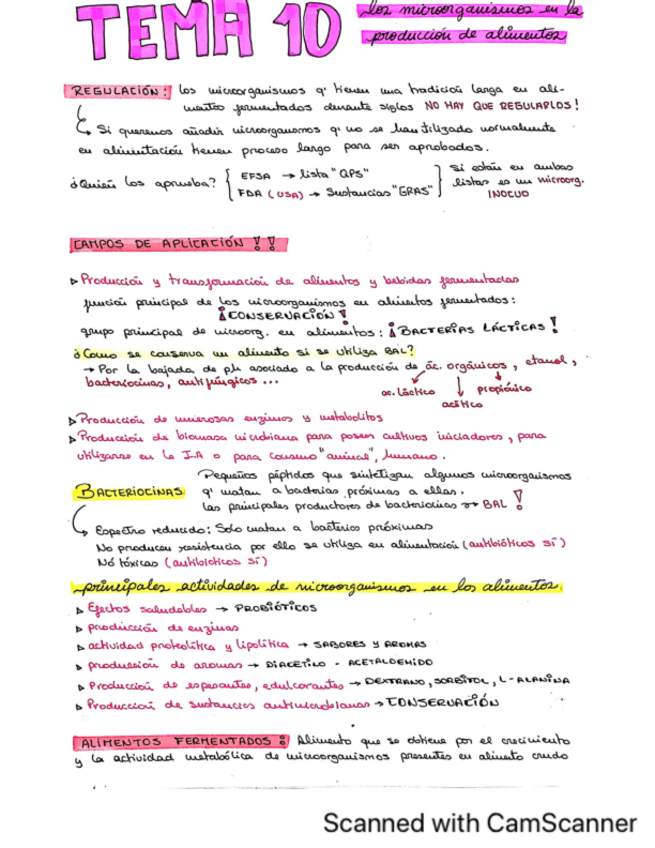 TEMA 10
los microorganismos en la
producción de alimentos
REGULACIÓN: los microorganismos q' tienen una tradición larga en ali-
mentos fermentados durante siglos NO HAY QUE REGULARLOS!
Si queremos añadir microorganismos q' no se han utilizado normalmente
en alimentación tienen proceso largo para ser aprobados.
¿Quién los aprueba? { EFSA → lista "QPS"
FDA (USA) → Sustancias "GRAS" }
Si están en ambas
listas es un microorg.
INOCUO
CAMPOS DE APLICACIÓN !!
▷ Producción y transformación de alimentos y bebidas fermentadas
función principal de los microorganismos en alimentos fermentados:
¡CONSERVACIÓN!
grupo principal de microorg. en alimentos: ¡BACTERIAS LÁCTICAS!
¿Como se conserva un alimento si se utiliza BAL?
→ Por la bajada de ph asociado a la producción de ác. orgánicos, etanol,
bacteriocinas, antifúngicos ...
ac. láctico
propiónico
acético
▷ Producción de numerosas enzimas y metabolitos
▷ Producción de biomasa microbiana para poseer cultivos iniciadores, para
utilizarse en la I.A o para consumo "animal", humano.
BACTERIOCINAS
Pequeños péptidos que sintetizan algunos microorganismos
q' matan a bacterias próximas a ellas.
las principales productores de bacteriocinas → BAL !
Espectro reducido: Solo matan a bacterias próximas
No producen resistencia por ello se utiliza en alimentación (antibióticos sí)
Nó tóxicas (antibioticos sí)
principales actividades de microorganismos en los alimentos
▷ Efectos saludables → PROBIÓTICOS
▷ producción de enzimas
▷ actividad proteolítica y lipolítica → SABORES Y AROMAS
▷ producción de aromas → DIACETILO - ACETALDEHIDO
▷ Producción de espesantes, edulcorantes → DEXTRANO, SORBITOL, L-ALANINA
▷ Producción de sustancias antimicrobianas → CONSERVACIÓN
ALIMENTOS FERMENTADOS: Alimento que se obtiene por el crecimiento
y la actividad metabólica de microorganismos presentes en alimento crudo
Scanned with CamScanner